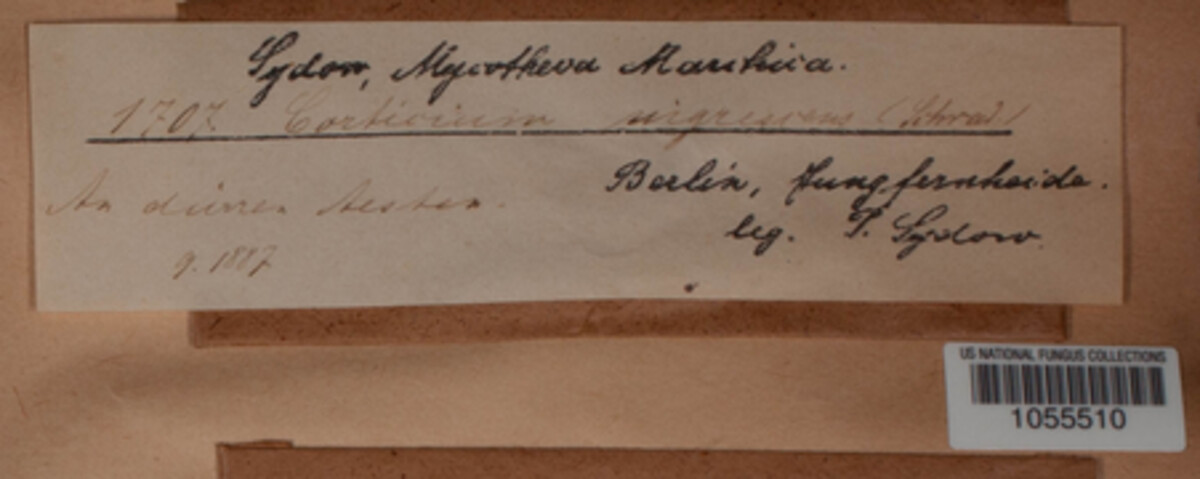 Sydow, Mycotheca Marchica.
1707. Corticium nigrescens (Schrad.)
An dürren Aesten.
9. 1887
Berlin, Jungfernheide.
leg. P. Sydow.
US NATIONAL FUNGUS COLLECTIONS
1055510